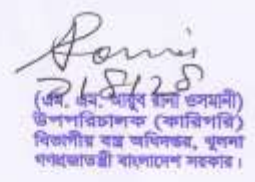 ২/৪/২৪
(এম. এম. আয়ুব রানা ওসমানী)
উপপরিচালক (কারিগরি)
বিভাগীয় বস্ত্র অধিদপ্তর, খুলনা
গণপ্রজাতন্ত্রী বাংলাদেশ সরকার।